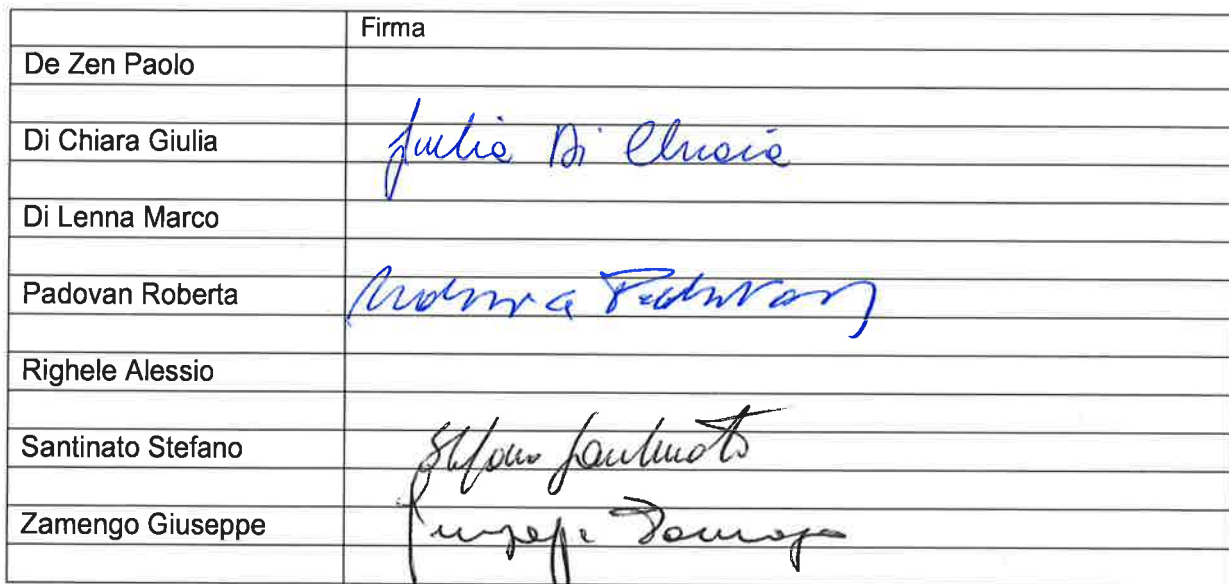 Firma
De Zen Paolo
Di Chiara Giulia Giulia Di Chiara
Di Lenna Marco
Padovan Roberta Padovan
Righele Alessio
Santinato Stefano Stefano Santinato
Zamengo Giuseppe Giuseppe Zamengo